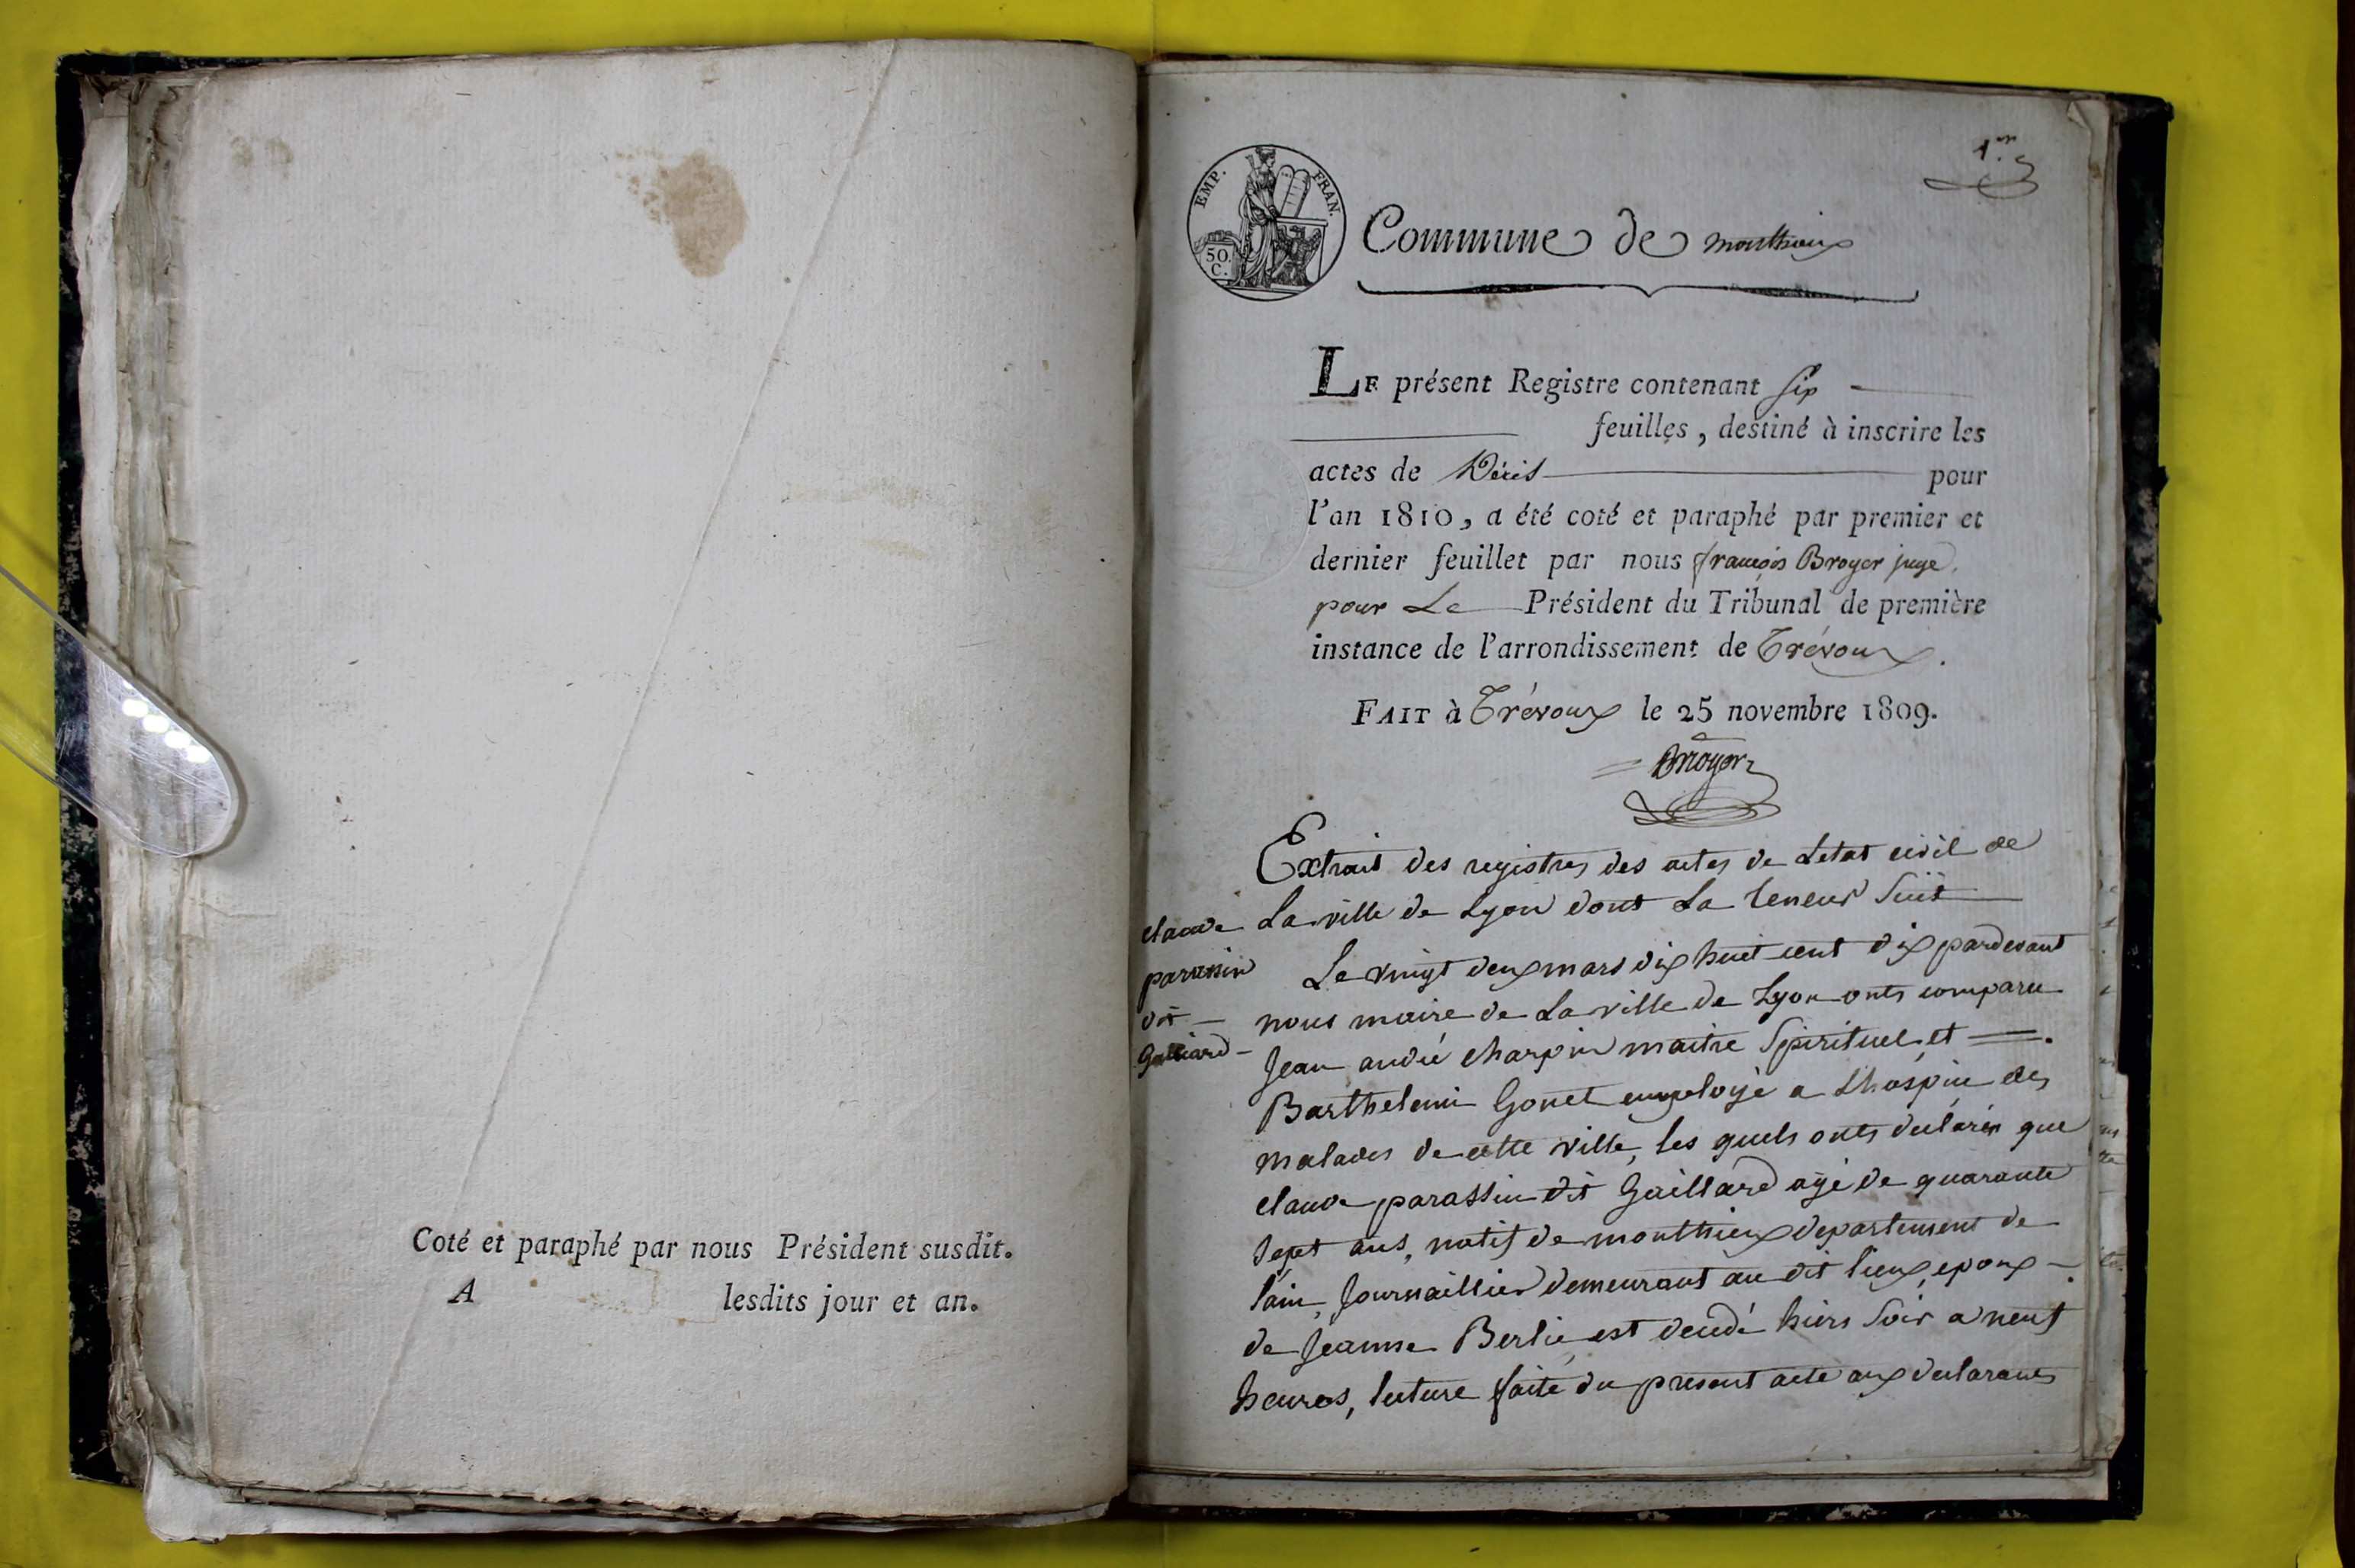 Coté et paraphé par nous Président susdit.
A lesdits jour et an.
1er
EMP. FRAN.
50.
C.
Commune de monthieux
LE présent Registre contenant six
feuilles, destiné à inscrire les
actes de Décès pour
l'an 1810, a été coté et paraphé par premier et
dernier feuillet par nous françois Broyer juge,
pour Le Président du Tribunal de première
instance de l'arrondissement de Trévoux.
FAIT à Trévoux le 25 novembre 1809.
Broyer
Extrait des registres des actes de Letat civil de
La ville de Lyon dont La teneur Suit
claude
parassin
dit
Gailliard
Le vingt deux mars dix huit cent dix pardevant
nous maire de La ville de Lyon onts comparu
Jean andré charpin maitre Spirituel et
Barthelemi Gonet employé a Lhospice des
malades de cette ville, les quels onts declarés que
claude parassin dit Gaillard agé de quarante
Sept ans, natif de monthieux departement de
lain, Journaillier demeurant au dit lieux, epoux
de Jeanne Berlié, est decedé hiers Soir a neuf
heures, lecture faite du present acte aux declarants